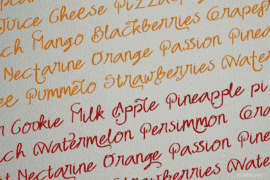 Juice Cheese Pizza
ch Mango Blackberries Grapef
t Nectarine Orange Passion Pine
ee Pummelo Strawberries Wate
r Cookie Milk Apple Pineapple pi
ch Watermelon Persimmon Gra
t Nectarine Orange Passion Pine
Strawberries Water